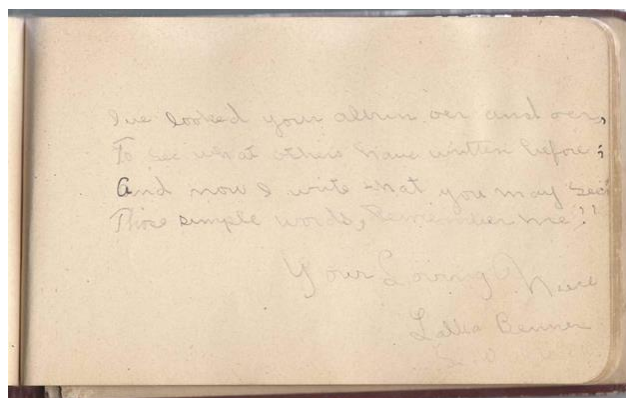 I've looked your album o'er and o'er,
To see what others have written before;
And now I write that you may "see"
Those simple words, Remember me!!
Your Loving Niece
Benner